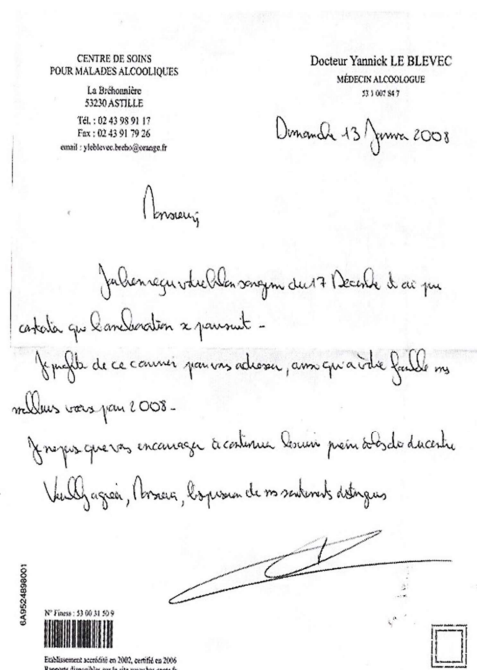 CENTRE DE SOINS
POUR MALADES ALCOOLIQUES
La Bréhonnière
53230 ASTILLE
Tél. : 02 43 98 91 17
Fax : 02 43 91 79 26
email : yleblevec.breho@orange.fr
Docteur Yannick LE BLEVEC
MÉDECIN ALCOOLOGUE
53 1 007 84 7
Dimanche 13 Janvier 2008
Monsieur,
J'ai bien reçu votre bilan sanguin du 17 Décembre et ai pu
constater que l'amélioration se poursuit -
Je profite de ce courrier pour vous adresser, ainsi qu'à votre famille mes
meilleurs voeux pour 2008 -
Je ne puis que vous encourager à continuer le suivi du centre
Veuillez agréer, Monsieur, l'expression de mes sentiments distingués
6A9524898001
N° Finess : 53 00 31 50 9
Etablissement accrédité en 2002, certifié en 2006